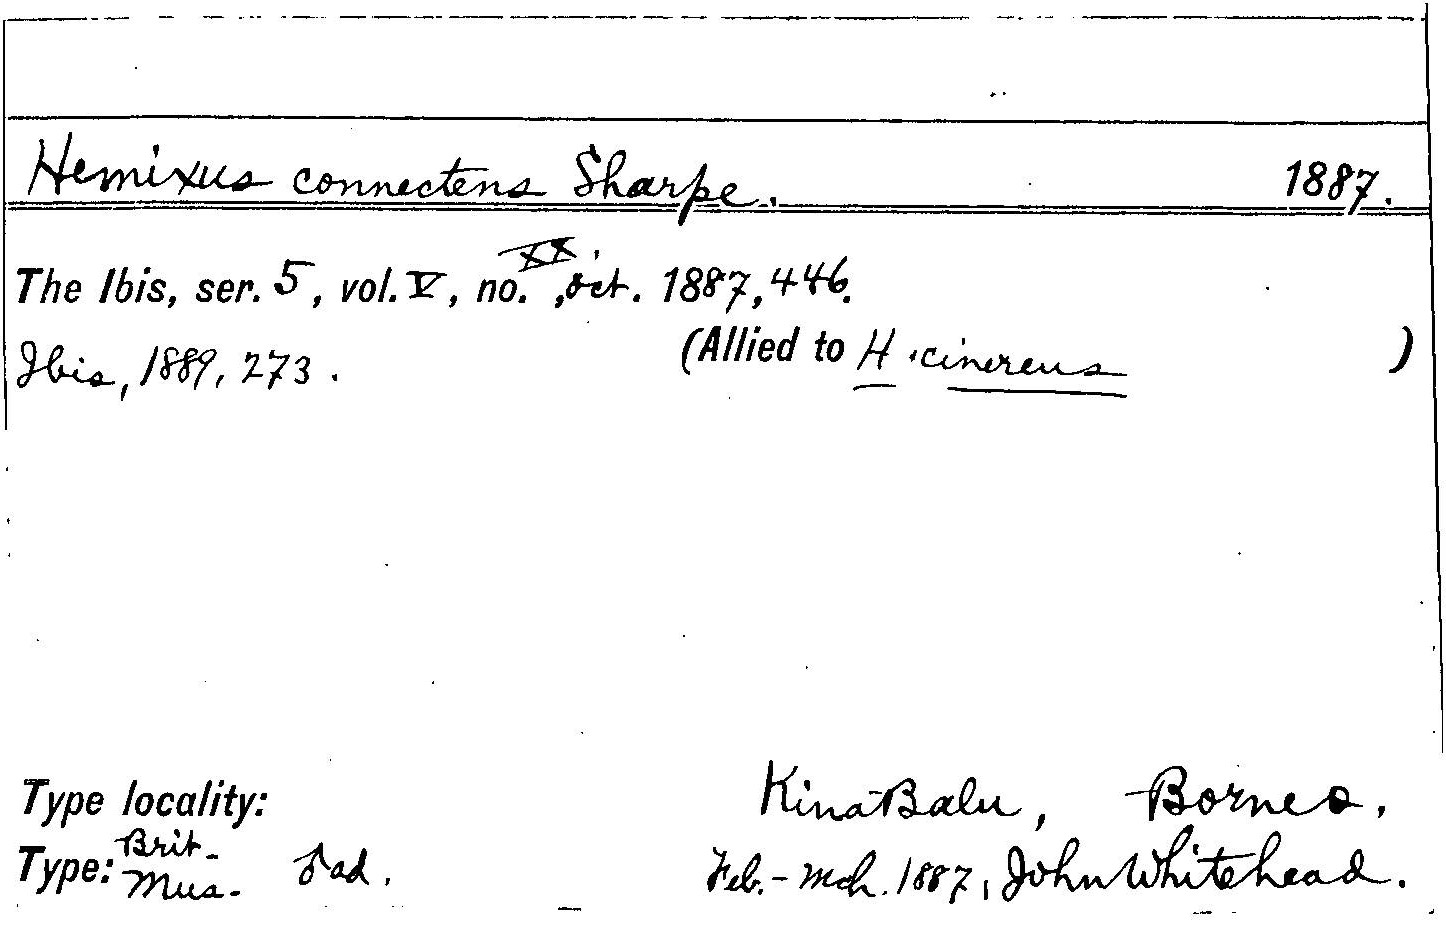 Hemixus connectens Sharpe. 1887.
The Ibis, ser. 5, vol. V, no. XX, oct. 1887, 446.
Ibis, 1889, 273. (Allied to H. cinereus )
Type locality: Kina Balu, Borneo.
Type: Brit. Mus. ♂ ad. Feb.-Mch. 1887, John Whitehead.